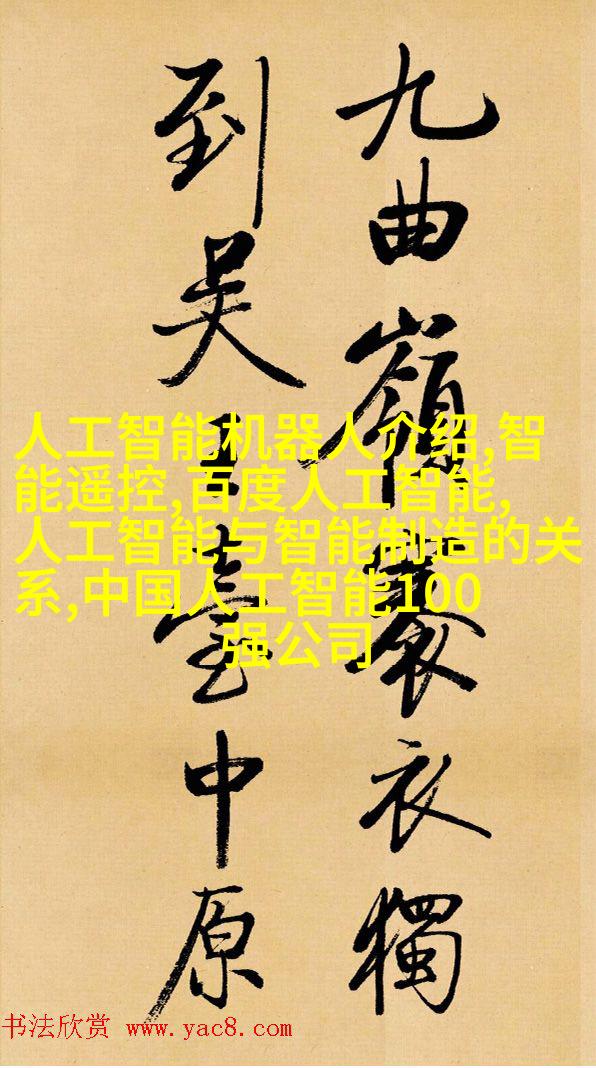 九曲嶺褰衣獨
到吳王臺中原
人工智能机器人介绍,智
能遥控,百度人工智能,
人工智能与智能制造的关
系,中国人工智能100
强公司
书法欣赏 www.yac8.com